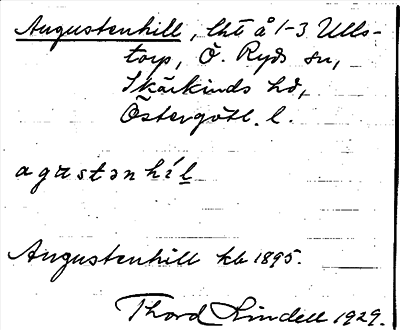 Augustenhill, lht å 1-3 Ulls-
torp, Ö. Ryds sn,
Skärkinds hd,
Östergötl. l.
agustənhíl
Augustenhill kb 1895.
Thord Lindell 1929.